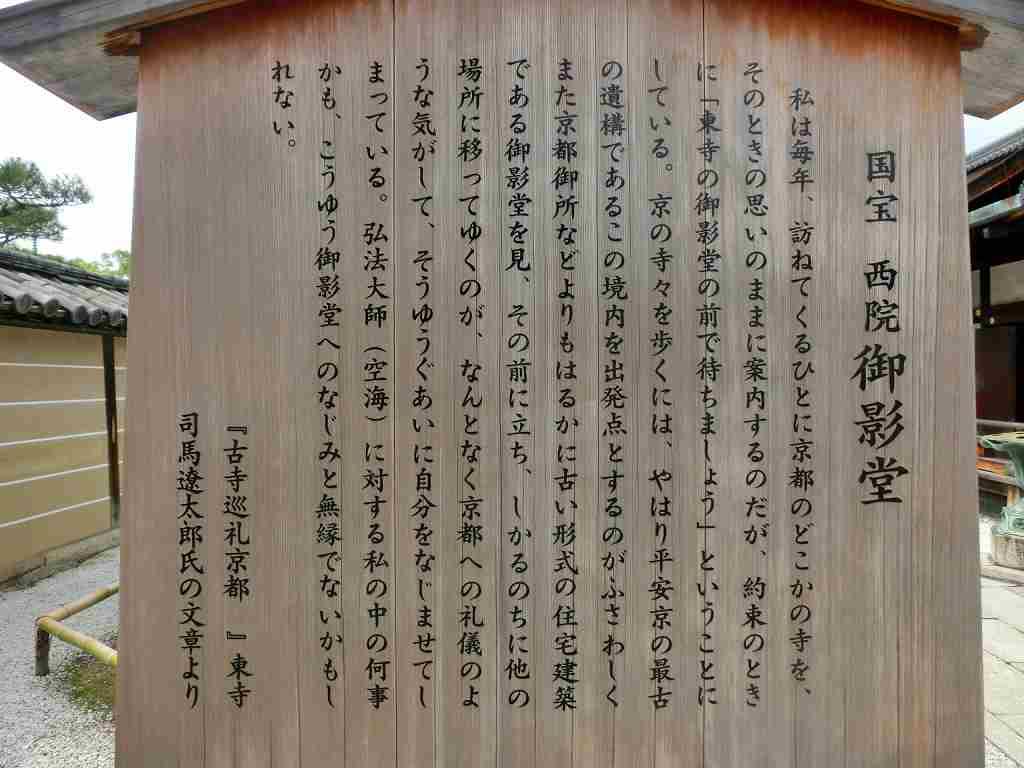 国宝 西院御影堂
私は毎年、訪ねてくるひとに京都のどこかの寺を、
そのときの思いのままに案内するのだが、約束のとき
に「東寺の御影堂の前で待ちましょう」ということに
している。京の寺々を歩くには、やはり平安京の最古
の遺構であるこの境内を出発点とするのがふさわしく
また京都御所などよりもはるかに古い形式の住宅建築
である御影堂を見、その前に立ち、しかるのちに他の
場所に移ってゆくのが、なんとなく京都への礼儀のよ
うな気がして、そうゆうぐあいに自分をなじませてし
まっている。弘法大師(空海)に対する私の中の何事
かも、こうゆう御影堂へのなじみと無縁でないかもし
れない。
『古寺巡礼京都 』東寺
司馬遼太郎氏の文章より